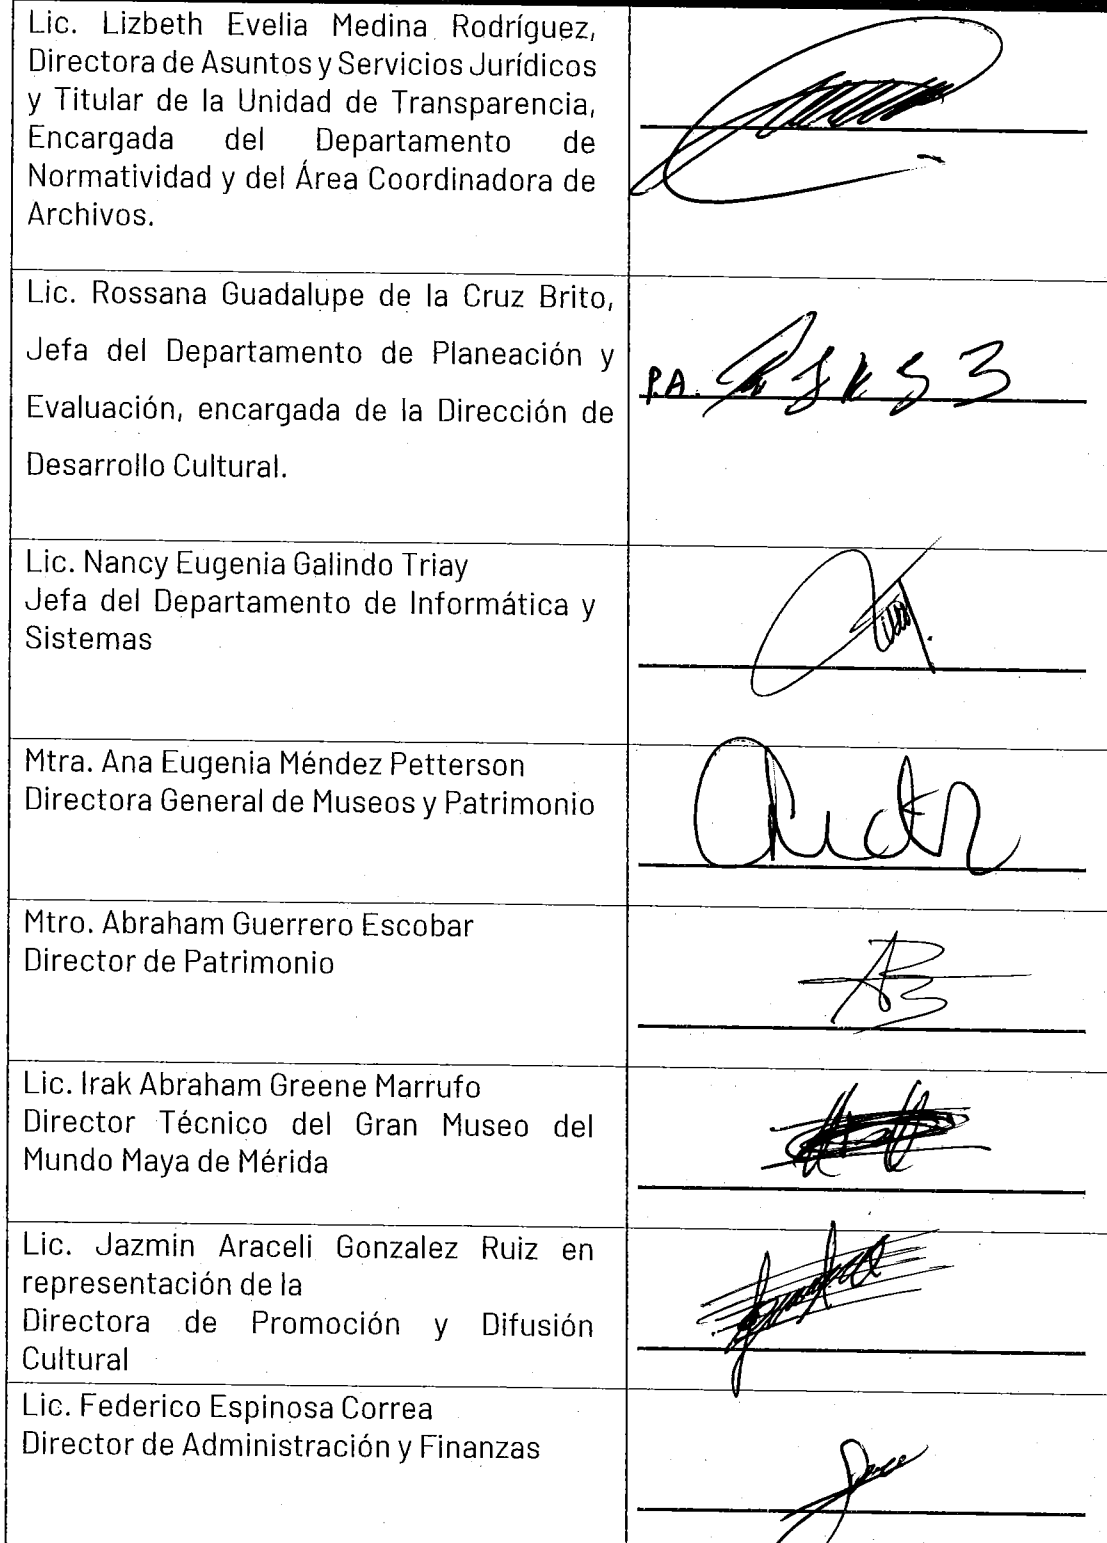 Lic. Lizbeth Evelia Medina Rodríguez,
Directora de Asuntos y Servicios Jurídicos
y Titular de la Unidad de Transparencia,
Encargada del Departamento de
Normatividad y del Área Coordinadora de
Archivos.
Lic. Rossana Guadalupe de la Cruz Brito,
Jefa del Departamento de Planeación y
Evaluación, encargada de la Dirección de
Desarrollo Cultural.
P.A.
Lic. Nancy Eugenia Galindo Triay
Jefa del Departamento de Informática y
Sistemas
Mtra. Ana Eugenia Méndez Petterson
Directora General de Museos y Patrimonio
Mtro. Abraham Guerrero Escobar
Director de Patrimonio
Lic. Irak Abraham Greene Marrufo
Director Técnico del Gran Museo del
Mundo Maya de Mérida
Lic. Jazmin Araceli Gonzalez Ruiz en
representación de la
Directora de Promoción y Difusión
Cultural
Lic. Federico Espinosa Correa
Director de Administración y Finanzas